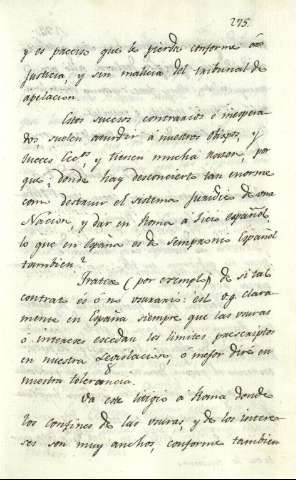 275.
y es preciso que la pierda conforme a
Justicia, y sin malicia del tribunal de
apelacion.
Estos sucesos contrarios è inespera
dos, suelen aturdir à nuestros Obispos, y
Jueces Ecc.cos, y tienen mucha razon, por
que ¿donde hay desconcierto tan enorme
como destruir el sistema Juridico de una
Nacion, y dar en Roma à Ticio español,
lo que en España es de Sempronio Español
tambien?
Tratese (por exemplo) de si tal
contrato es ò no usurario: es v.g. clara
mente en España siempre que las usuras
ò intereses escedan los limites prescriptos
en nuestra Legislacion, ò mejor diré en
nuestra tolerancia.
Va este litigio à Roma donde
los confines de las usuras, y de los intere
ses son muy anchos, conforme tambien